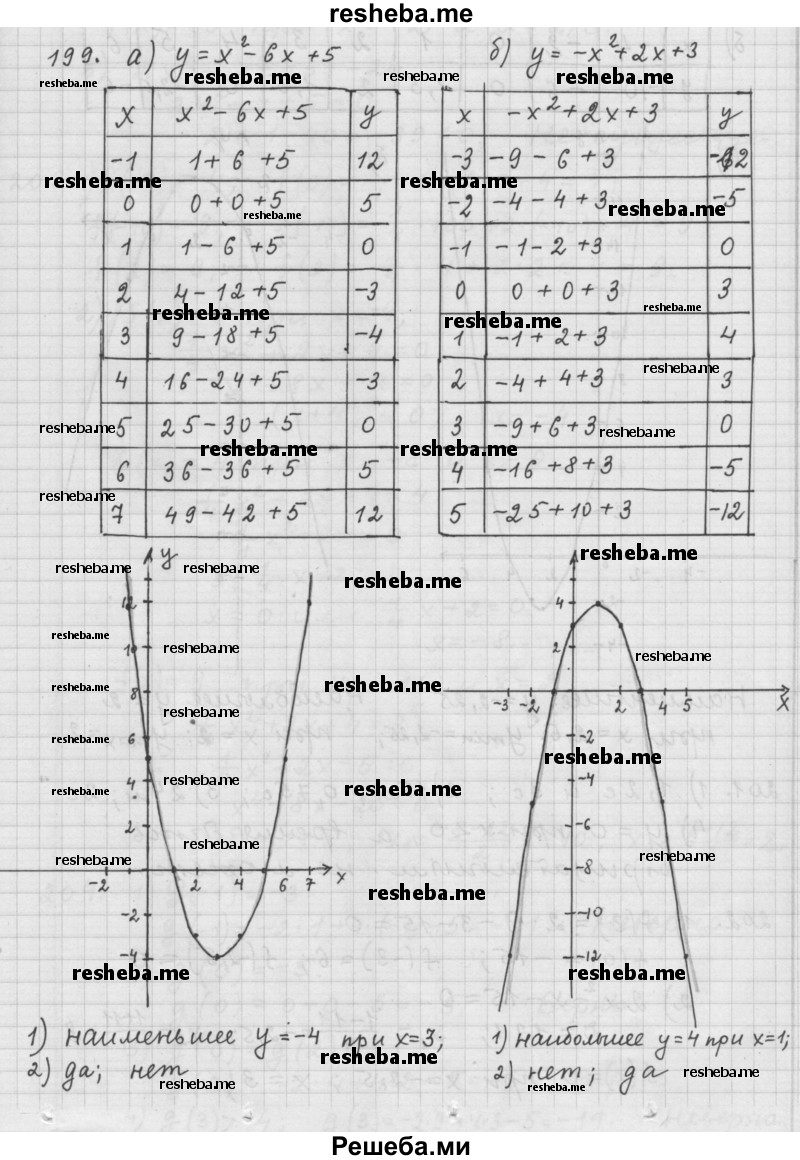 resheba.me
199. а) y = x² - 6x + 5
б) y = -x² + 2x + 3
resheba.me resheba.me resheba.me resheba.me
x x² - 6x + 5 y
-1 1 + 6 + 5 12
0 0 + 0 + 5 5
1 1 - 6 + 5 0
2 4 - 12 + 5 -3
3 9 - 18 + 5 -4
4 16 - 24 + 5 -3
5 25 - 30 + 5 0
6 36 - 36 + 5 5
7 49 - 42 + 5 12
x -x² + 2x + 3 y
-3 -9 - 6 + 3 -12
-2 -4 - 4 + 3 -5
-1 -1 - 2 + 3 0
0 0 + 0 + 3 3
1 -1 + 2 + 3 4
2 -4 + 4 + 3 3
3 -9 + 6 + 3 0
4 -16 + 8 + 3 -5
5 -25 + 10 + 3 -12
resheba.me resheba.me resheba.me
resheba.me
resheba.me resheba.me
resheba.me
resheba.me resheba.me
resheba.me
resheba.me resheba.me
resheba.me
y
12
10
8
6
4
2
-2 2 4 6 7 x
-2
-4
4
2
-3 -2 2 4 5 x
-2
-4
-6
-8
-10
-12
resheba.me resheba.me resheba.me
resheba.me
resheba.me resheba.me resheba.me
resheba.me resheba.me
resheba.me
resheba.me resheba.me
resheba.me resheba.me resheba.me
resheba.me
resheba.me resheba.me
resheba.me
resheba.me resheba.me
1) наименьшее y = -4 при x = 3;
2) да; нет
1) наибольшее y = 4 при x = 1;
2) нет; да
resheba.me
resheba.me resheba.me resheba.me
Решеба.ми